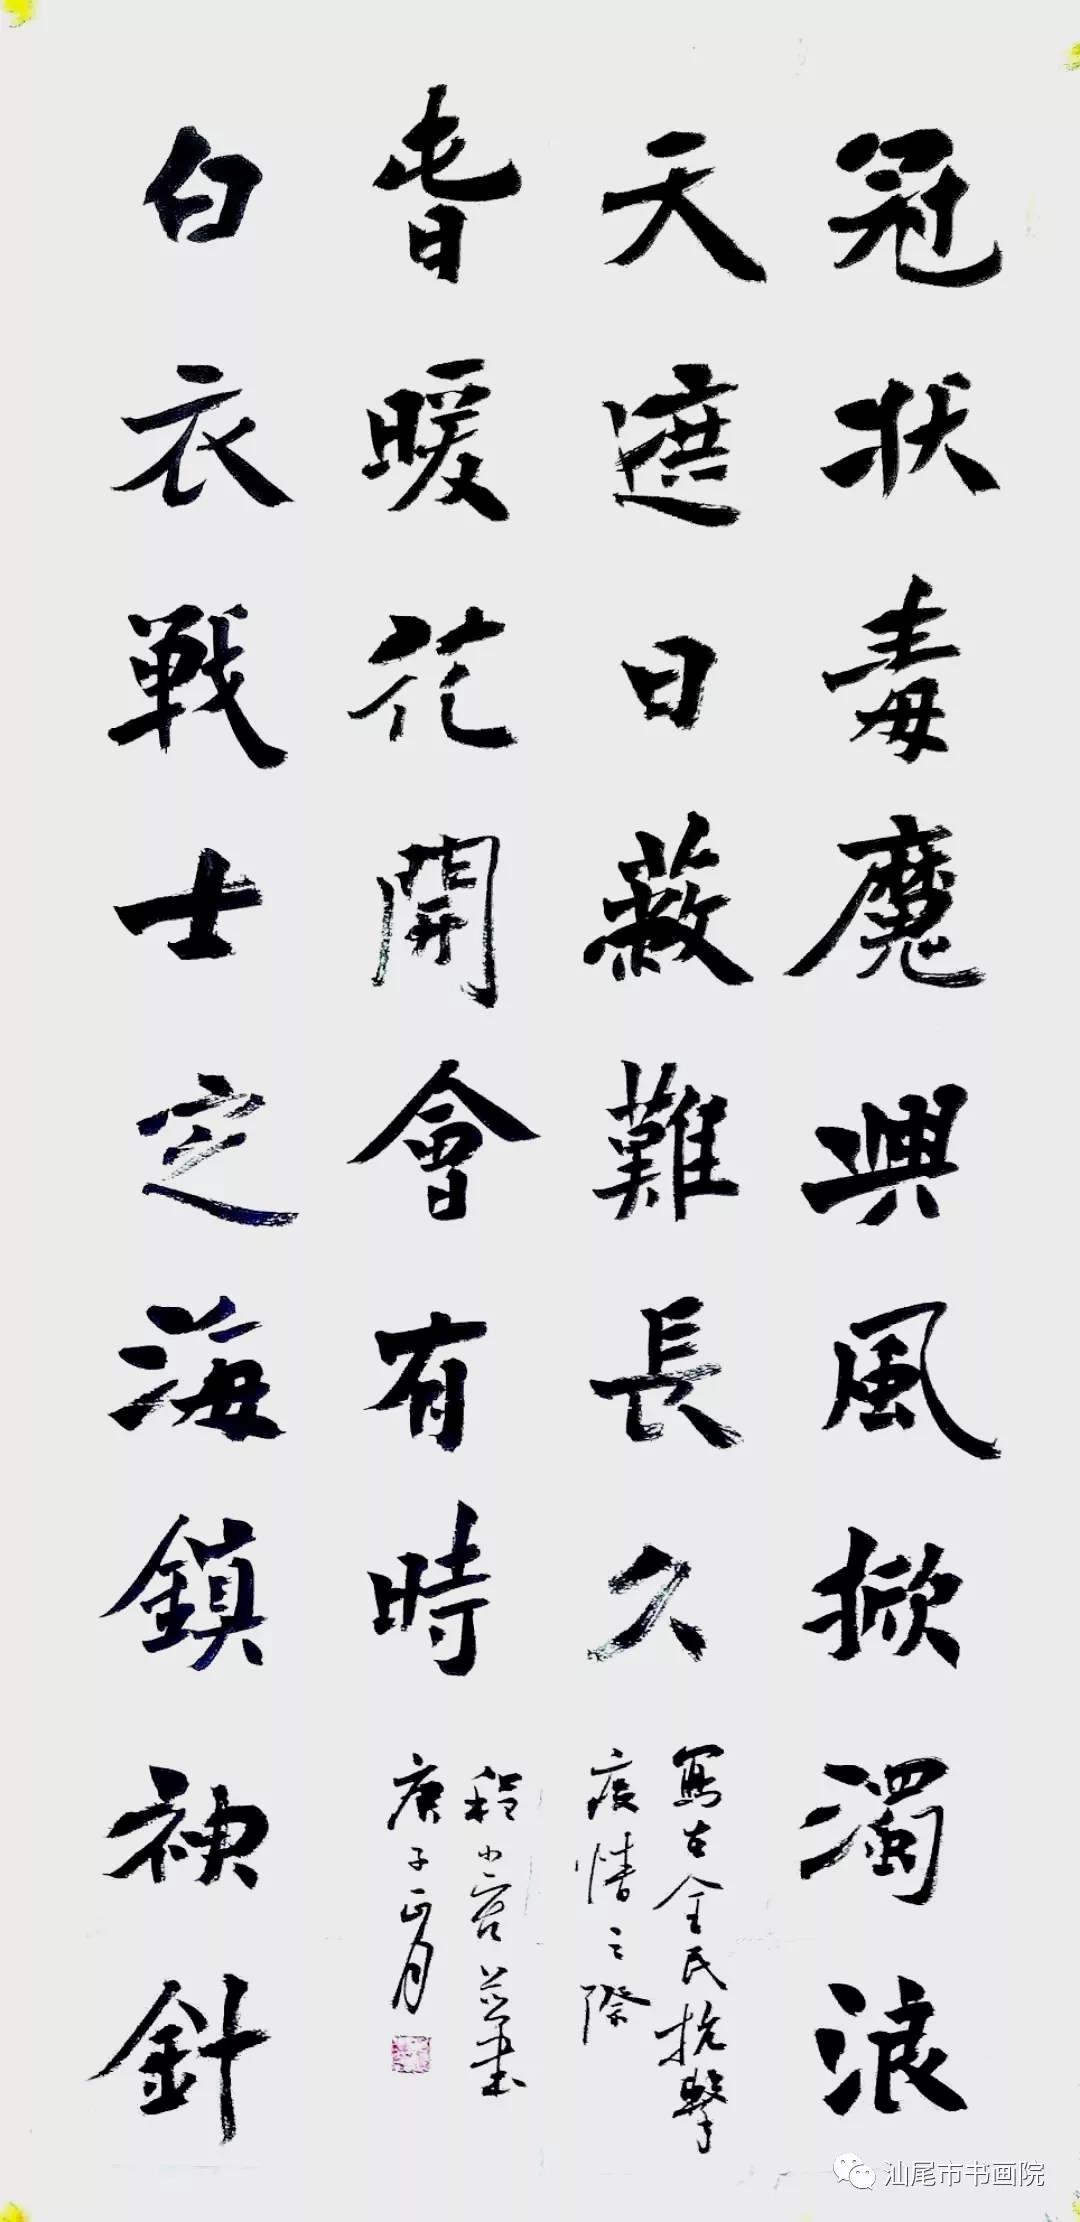 冠状毒魔興風掀濁浪
天遮日蔽難長久
春暖花開會有時
白衣戰士定海鎮神針
寫在全民抗擊
疫情之際
程小宏并書
庚子正月
汕尾市书画院